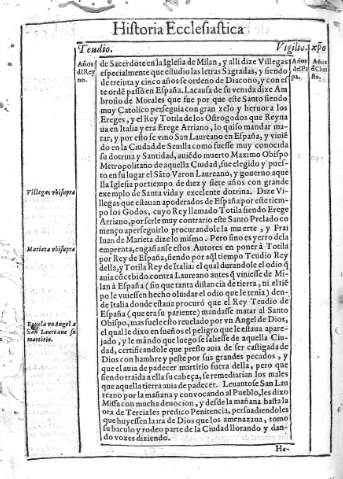 Historia Ecclesiastica
Teudio.
Vigilio.
xp̃o
Años del Reyno.
Años del Papa.
Años d Christo.
de Sacerdote en la Iglesia de Milan, y alli dize Villegas
especialmente que estudio las letras Sagradas, y siendo
de treinta y cinco años se ordeno de Diacono, y con este
ordẽ passò en España. La causa de su venida dize Ambrosio
de Morales que fue por que este Santo siendo
muy Catolico perseguia con gran zelo y heruor a los
Ereges, y el Rey Totila de los Ostrogodos que Reynaua
en Italia y era Erege Arriano, lo quiso mandar matar,
y por esto se vino San Laureano en España, y viniẽdo
en la Ciudad de Seuilla como fuesse muy conocida
su dotrina y Santidad, auiẽdo muerto Maximo Obispo
Metropolitano de aquella Ciudad, fue elegido y puesto
en su lugar el Sãto Varon Laureano, y gouerno aquella
Iglesia por tiempo de diez y siete años con grande
exemplo de Santa vida y excelente dotrina. Dize Villegas
que estauan apoderados de España por este tiempo
los Godos, cuyo Rey llamado Totila siendo Erege
Arriano, por serle muy contrario este Santo Prelado començo
aperseguirlo procurandole la muerte, y Fray
Iuan de Marieta dize lo mismo. Pero sino es yerro de la
emprenta, engañanse estos Autores en poner à Totila
por Rey de España, siendo por aq̃l tiempo Teudio Rey
della, y Totila Rey de Italia: el qual durandole el odio q̃
auia cõcebido contra Laureano antes q̃ viniesse de Milan
à España (sin que tanta distancia de tierra, ni el tiẽpo
le vuiessen hecho oluidar el odio que le tenia) dende
Italia donde estaua procurò que el Rey Teudio de
España (que era su pariente) mandasse matar al Santo
Obispo, mas fuele esto reuelado por vn Angel de Dios,
el qual le dixo en sueños el peligro que le estaua aparejado,
y le mãdo que luego se saliesse de aquella Ciudad,
certificandole que presto auia de ser castigada de
Dios con hambre y peste por sus grandes pecados, y
que el auia de padecer martirio fuera della, pero que
siendo traida a ella su cabeça, se remediarian los males
que aquella tierra auia de padecer. Leuantose San Laureano
por la mañana y conuocando al Pueblo, les dixo
Missa con mucha deuocion, y desde la mañana hasta la
ora de Tercia les predico Penitencia, persuadiendoles
que huyessen la ira de Dios que los amenazaua, tomo
su baculo y rodeo parte de la Ciudad llorando y dando
vozes diziendo.
He-
Villegas vbi supra
Marieta vbi supra
Reuela vn Angel a San Laureano su martirio.